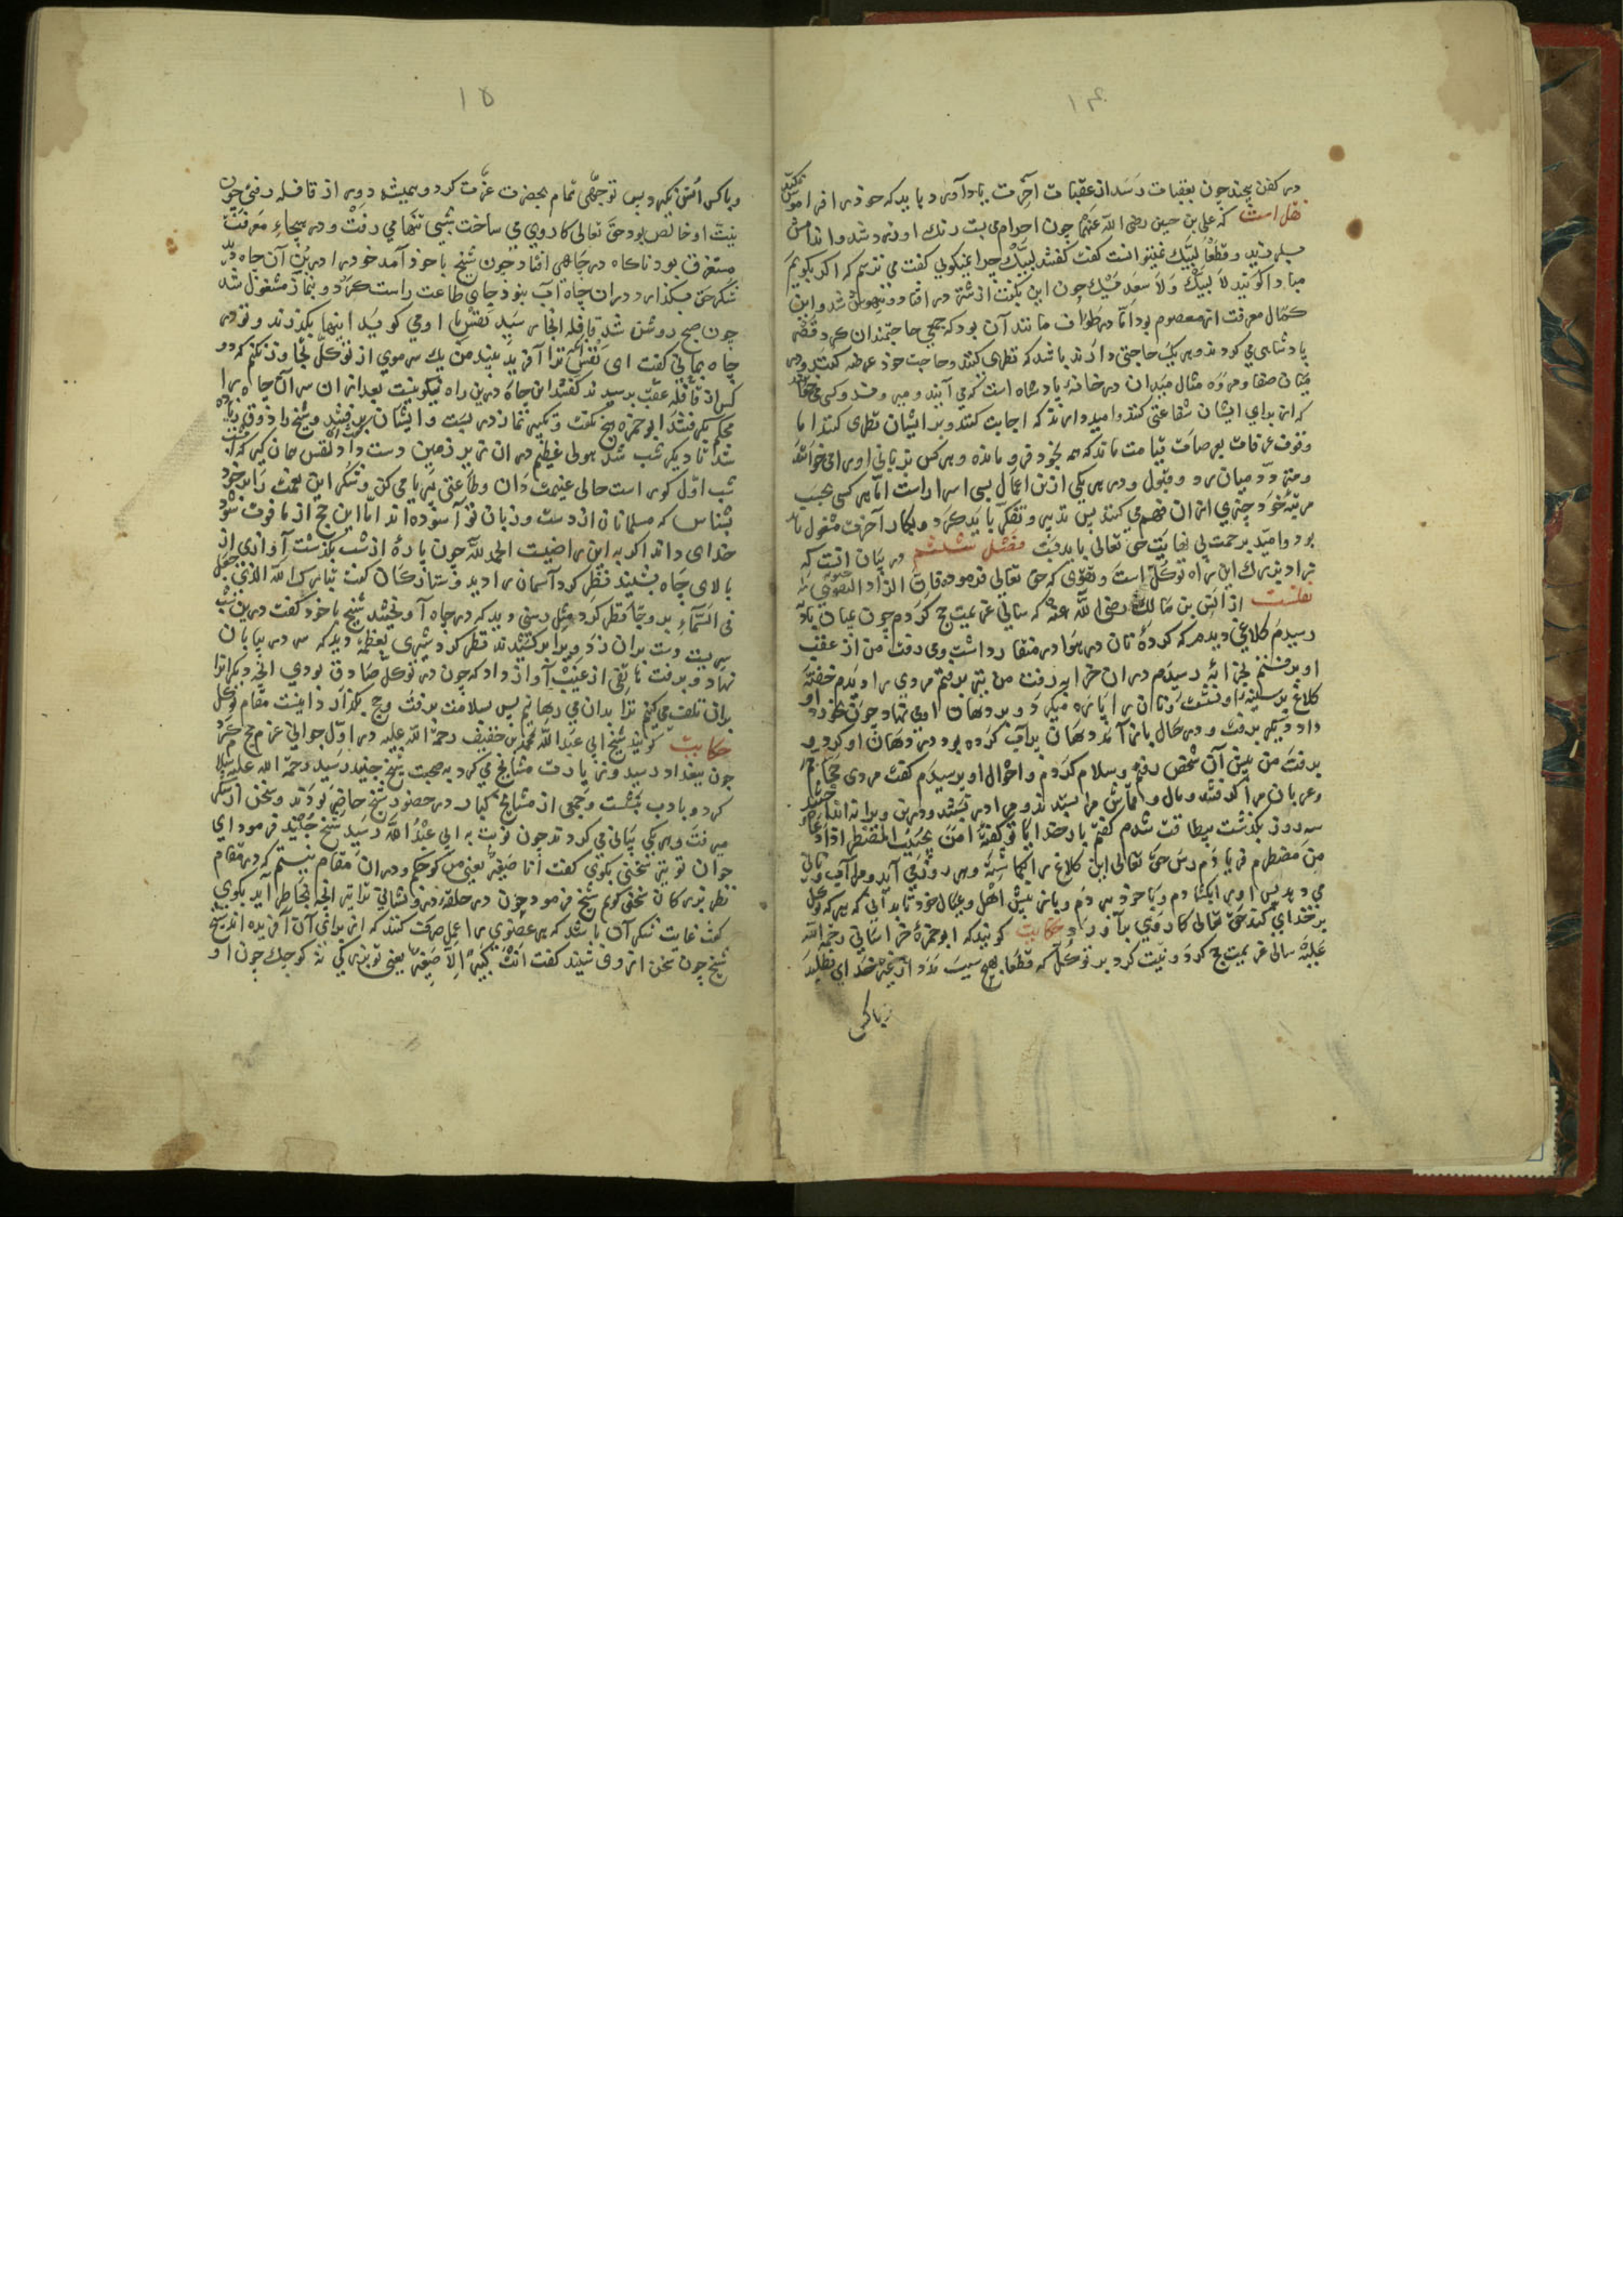 ۱۴
در کفن پیچند چون بعقبات رسد از عقبات آخرت یاد آورد و باید که خود را فراموش نکند
نقل است که علی بن حسین رضی الله عنهما چون احرام می بست رنك او زرد شد و اندامش
بلرزید و قطعا لبیك نمیتوانست كفت كفتند لبیك چرا نمیکویی كفت می ترسم که اکر بکویم
مبادا کویند لا لبیك ولا سعدیك چون این بکفت از شتر در افتاد و بیهوش شد و این
کمال معرفت ان معصوم بود اما در طواف مانند آن بود که جمعی حاجتمندان کرد قصر
پادشاهی می کردند و هر یك حاجتی دارند باشد که نظری کنند و حاجت خود عرضه کنند و در
میان صفا و مروه مثال میدان در خانه پادشاه است که می آیند و میروند و کسی می
که از برای ایشان شفاعتی کند و امید دارند که اجابت کنند و بر ایشان نظری کنند اما
وقوف عرفات بعرصات قیامت ماند که همه بخود فرو مانده و هر کس بزبانی او را می خوانند
و متردد میان رد و قبول و در هر یکی ازین اعمال بسی اسرار است اما هر کسی بحسب
مرتبه خود چیزی از ان فهم می کند پس تدبیر و تفکر باید کرد و بکار آخرت مشغول باید
بود و امید برحمت بی نهایت حق تعالی باید داشت فصل ششم در بیان انست که
زاد بزرك این راه توکل است و تقوی که حق تعالی فرموده فان خیر الزاد التقوی
نقلست از انس بن مالك رضی الله عنه که سالی عزیمت حج کردم چون بمیان بادیه
رسیدم کلاغی دیدم که کرده نان در هوا در منقار داشت و می رفت من از عقب
او برفتم بخرابه رسیدم دران خرابه رفت من نیز برفتم مردی را دیدم خفته
کلاغ بر سینه او نشست و نان را پاره میکرد و بر دهان او می نهاد چون خورد
داد و دیکر برفت و در حال باز آمد و دهان پرآب کرده بود در دهان او کرد و
برفت من پیش آن شخص رفتم و سلام کردم و احوال او پرسیدم كفت مردی حجاجم
و عربان مرا کرفتند و مال و قماش مرا بستدند و مرا در بستند و درین ویرانه انداختند
سه روز بکذشت بیطاقت شدم كفتم بار خدایا تو كفته امن یجیب المضطر اذا دعاه
من مضطرم فریادم رس حق تعالی این کلاغ را کماشته هر روز می آید و مرا آب و نانی
می دهد پس او را بکشادم و با خود بردم و باز پیش اهل و عیال خود تا بدانی که هر که توکل
بر خدای کند حق تعالی کار وی برآورد حکایت کویند که ابو حمزه خراسانی رحمة الله
علیه سالی عزیمت حج کرد و نیت کرد بر توکل که قطعا بهیچ سبب مدد از غیر خدای نطلبد
و با کس
۱۵
و با کس انس نکیرد پس توجهی تمام بحضرت عزت کرد و همیشه دور از قافله رفتی چون
نیت او خالص بود حق تعالی کار وی می ساخت شبی تنها می رفت و در معرفت
مستغرق بود ناکاه در چاهی افتاد چون شیخ با خود آمد خود را در بن آن چاه دید
شکر حق بکذارد و دران چاه آب نبود جای طاعت راست کرد و بنماز مشغول شد
چون صبح روشن شد قافله انجا رسید نفس با او می کوید اینها بکذرند و تو در
چاه بمانی كفت ای نفس انکس ترا آفرید بیند من یك سر موی از توکل تجاوز نکنم که دو
کس از قافله عقب برسیدند كفتند این چاه درین راه نیکو نیست بعد ازان سر آن چاه را
محکم بکرفتند ابو حمزه هیچ نكفت و تکبیر نماز در بست و ایشان برفتند و شیخ را ذوق زیاده
شد تا دیکر شب شد هولی عظیم دران زیر زمین دست داد كفت ای نفس همان کیر که
شب اول کور است حالی غنیمت دان و طاعتی بی ریا می کن و شکر این نعمت را بر خود
بشناس که مسلمانان از دست و زبان تو آسوده اند اما این حج از ما فوت شود
خدای داند اکر به این راضیست الحمد لله چون پاره از شب بکذشت آوازی از
بالای چاه بشنید نظر کرد آسمان را دید و ستارکان كفت تبارك الله الذی جعل
فی السماء بروجا نظر کرد مثل رسنی دید که در چاه آویختند شیخ با خود كفت درین شب
دست بران زد و برا برکشیدند نظر کرد شیری بعظمة دید که سر در بیابان
نهاد و برفت هاتفی از غیب آواز داد که چون در توکل صادق بودی انچه دیکرانرا
بران تلف می کنم ترا بدان می رهانیم پس بسلامت برفت و حج بکذارد اینست مقام توکل
حکایت کویند شیخ ابی عبدالله محمد بن خفیف رحمة الله علیه در اول جوانی عزم حج کرد
چون ببغداد رسید و زیارت مشایخ می کرد به صحبت شیخ جنید رسید رحمة الله علیه سلام
کرد و بادب بنشست و جمعی از مشایخ کبار در حضور شیخ حاضر بودند و سخن از شکر
میرفت و هر یکی بیانی می کردند چون نوبت به ابی عبد الله رسید شیخ جنید فرمود ای
جوان تو نیز سخنی بکوی كفت أنا صغیر یعنی من کوچکم و دران مقام نیستم که در مقام
نظر بزرکان سخن کویم شیخ فرمود چون در حلقه درویشانی ترا نیز انچه بخاطر آید بکوی
كفت غایت شکر آن باشد که هر عضوی را عمل صرفت کنند که از برای آن آفریده اند شیخ
شیخ چون سخن از وی شنید كفت انت کبیر لا صغیر یعنی تو بزرکی نه کوچك چون او